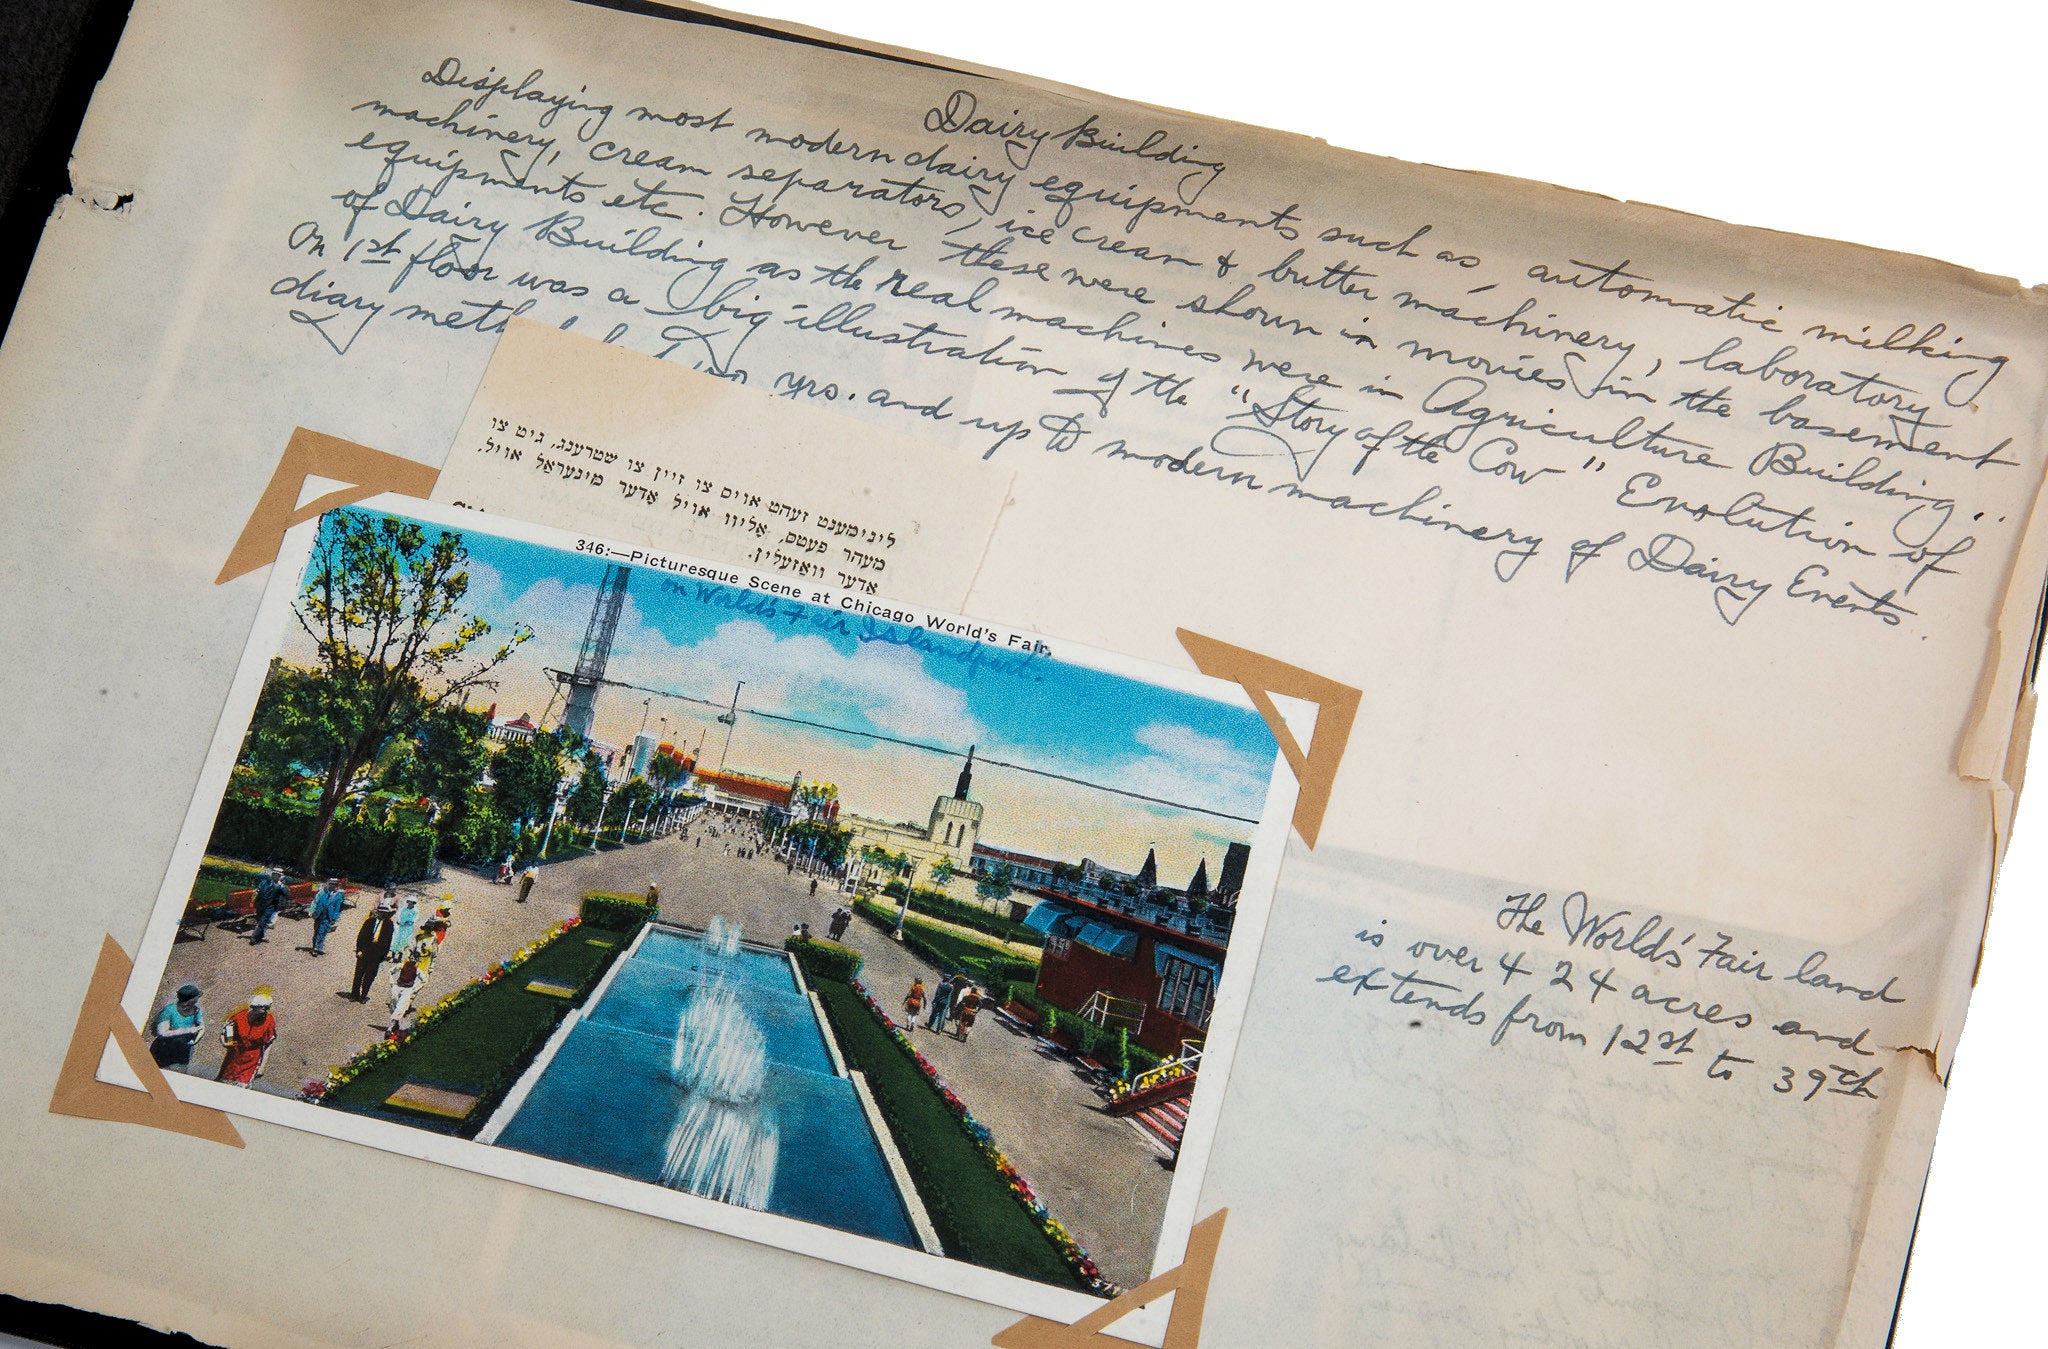 Dairy Building
Displaying most modern dairy equipments such as, automatic milking
machinery, cream separators, ice cream & butter machinery, laboratory
equipments etc. However these were shown in movies in the basement
of Dairy Building as the real machines were in Agriculture Building..
On 1st floor was a big illustration of the "Story of the Cow" Evolution of
diary yrs. and up to modern machinery of Dairy Events.
לינימענט זעהט אויס צו זיין צו שטרענג, גיט צו
מעהר פעטס, אָליוו אויל אָדער מינעראַל אויל,
אָדער וואַזעלין.
346:—Picturesque Scene at Chicago World's Fair.
on World's Fair Island port.
The World's Fair land
is over 424 acres and
extends from 12st to 39th